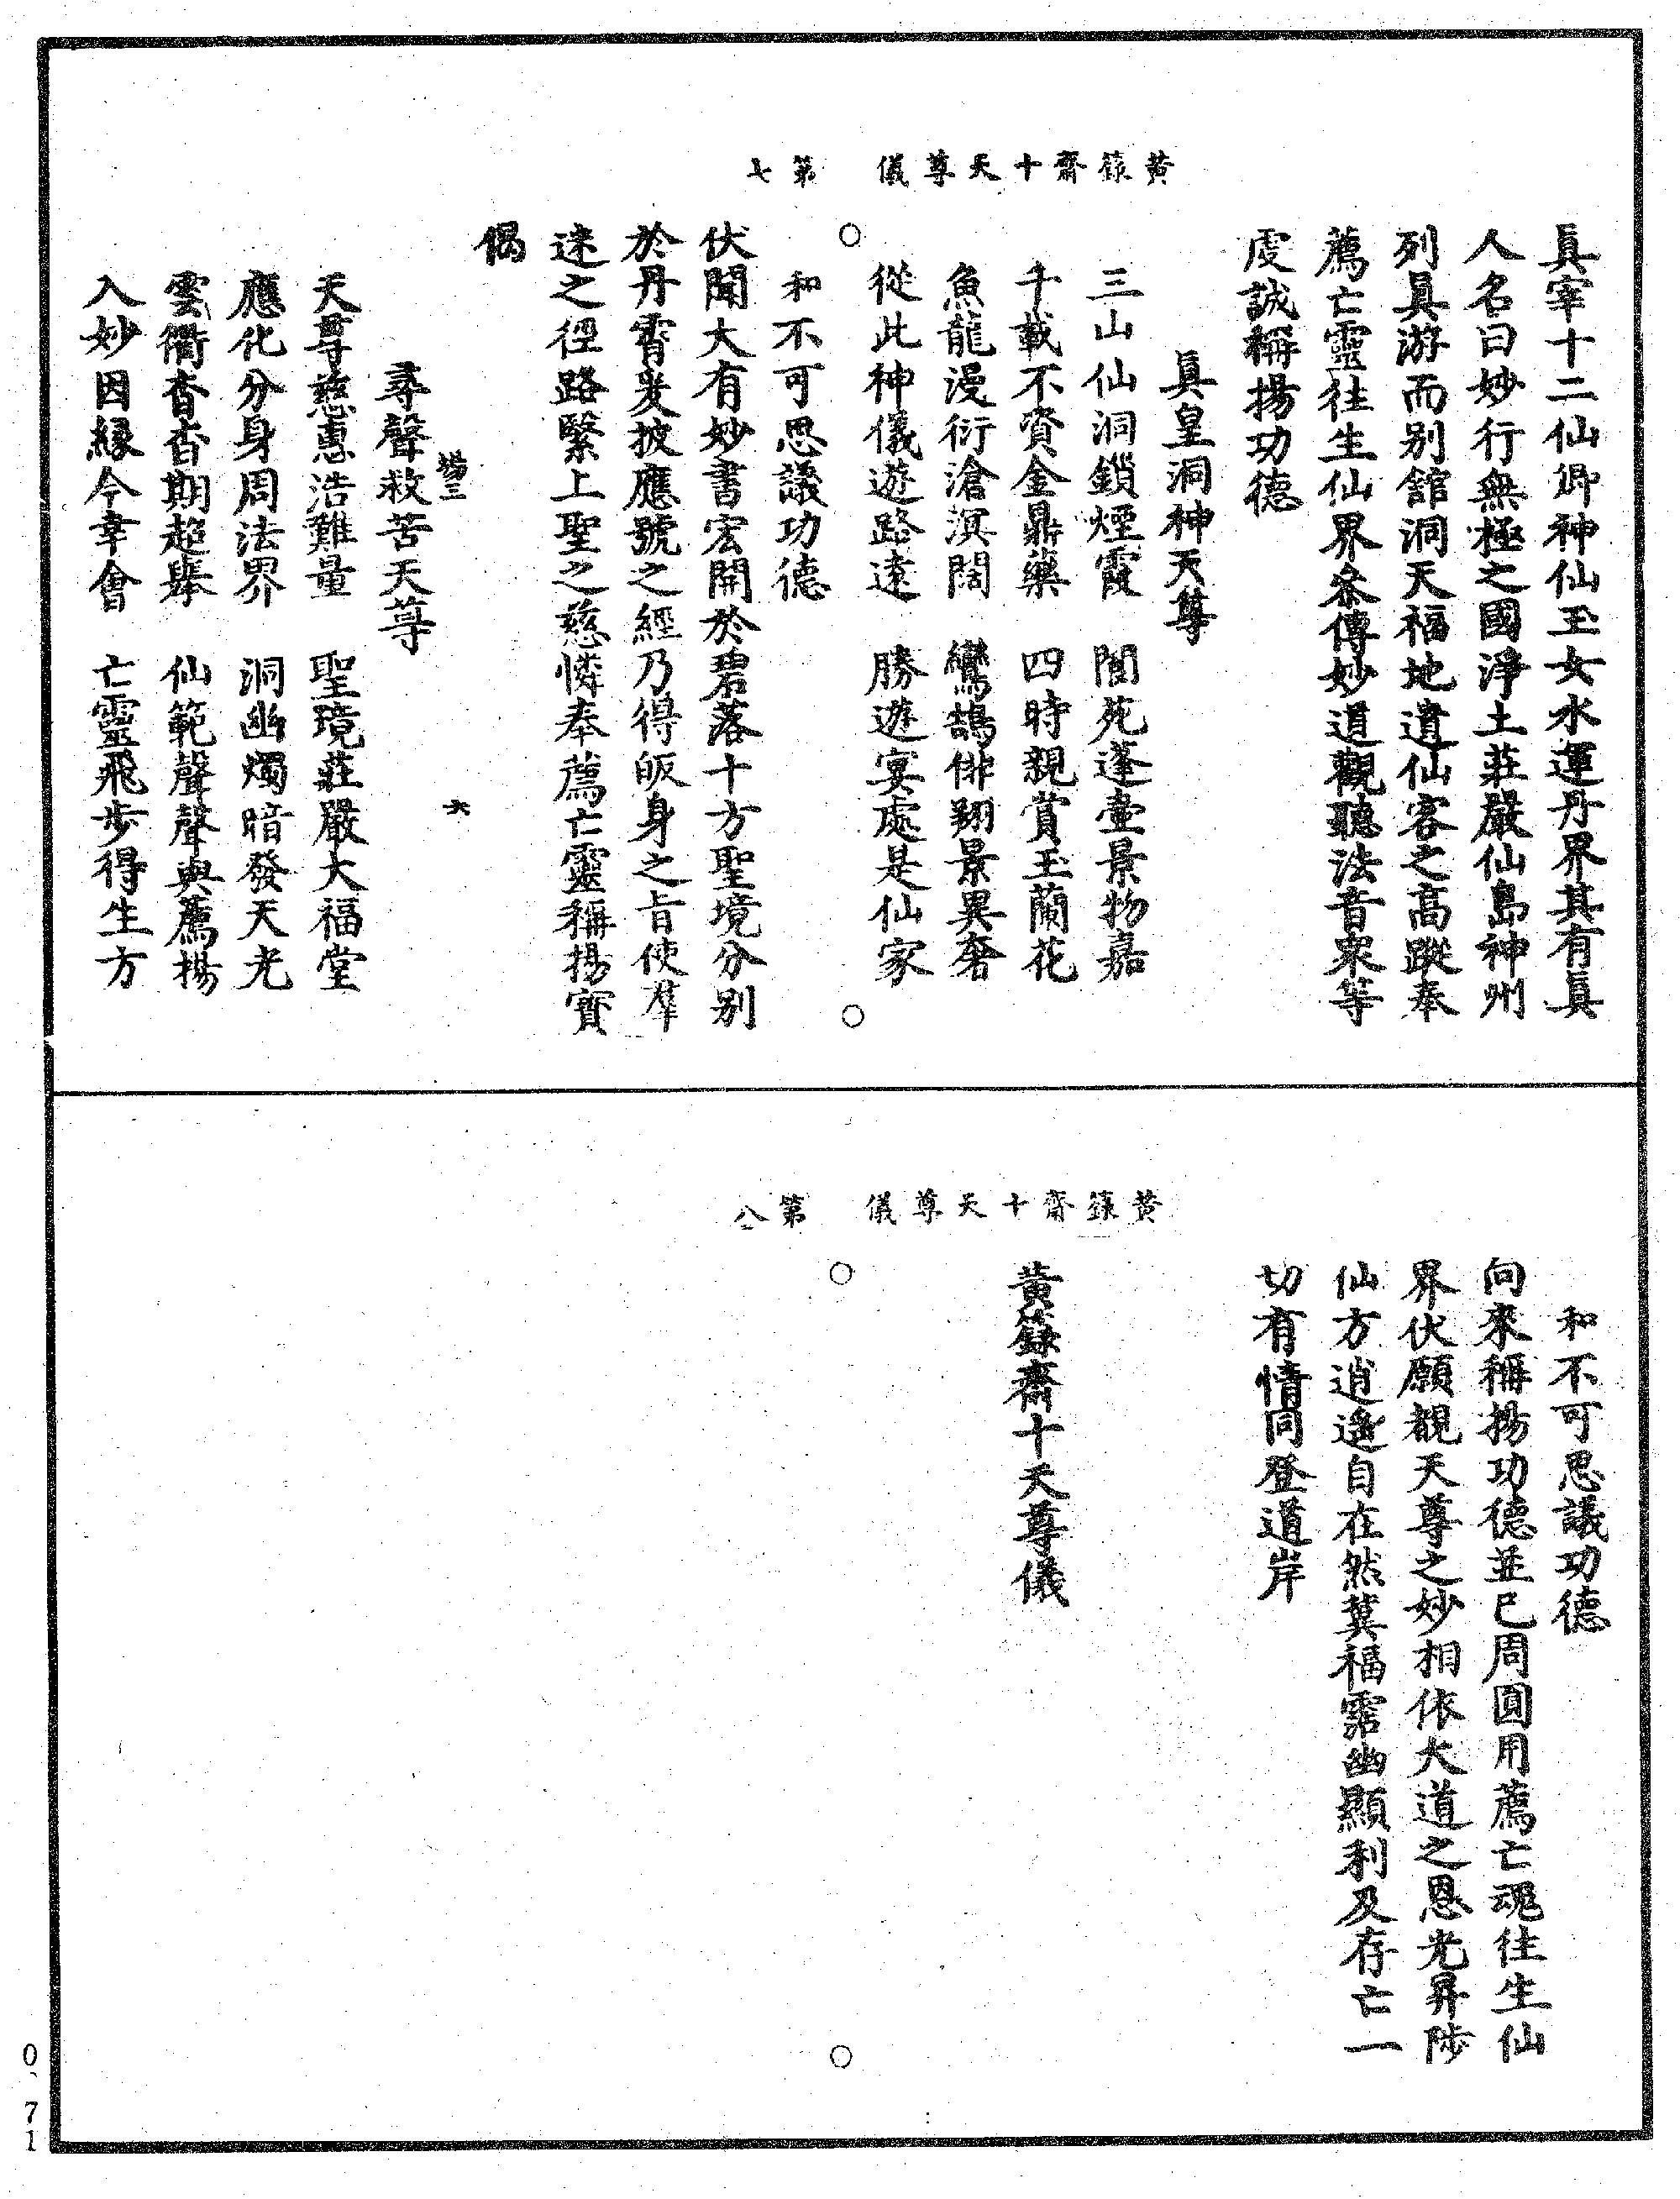 黃籙齋十天尊儀　第七
眞宰十二仙卿神仙玉女水運丹界其有眞
人名曰妙行無極之國淨土莊嚴仙島神州
列具游而别館洞天福地遺仙客之高蹤奉
薦亡靈往生仙界叅傳妙道觀聽法音衆等
虔誠稱揚功德
眞皇洞神天尊
三山仙洞鎖煙霞　閬苑蓬壷景物嘉
千載不資金鼎藥　四時親賞玉蘭花
魚龍漫衍滄溟闊　鸞鵠俳翔景異奢
從此神儀遊路遠　勝遊宴處是仙家
和不可思議功德
伏聞大有妙書宏開於碧落十方聖境分别
於丹霄爰披應號之經乃得皈身之旨使羣
迷之徑路緊上聖之慈憐奉薦亡靈稱揚寳
偈
三　六
尋聲救苦天尊
天尊慈惠浩難量　聖境莊嚴大福堂
應化分身周法界　洞幽燭暗發天光
雲衢杳杳期超舉　仙範聲聲與薦揚
入妙因緣今幸會　亡靈飛步得生方
黃籙齋十天尊儀　第八
和不可思議功德
向來稱揚功德並已周圓用薦亡魂往生仙
界伏願覩天尊之妙相依大道之恩光昇陟
仙方逍遙自在然冀福霑幽顯利及存亡一
切有情同登道岸
黃籙齋十天尊儀
0 71